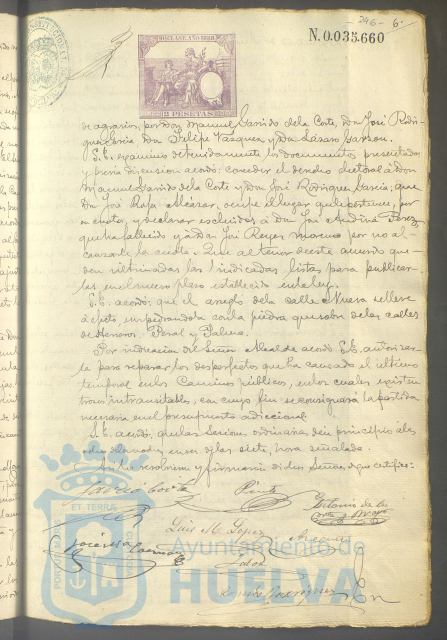 -246- 6-
N.0.035.660
10ª CLASE. AÑO 1880.
2 PESETAS
de agravios, por Don Manuel Garrido de la Corte, Don José Rodri-
guez García, Dn Felipe Vazquez y Dn Lázaro Garzon.
S.E. examinó detenidamente los documentos presentados
y previa discusion acordó: conceder el derecho electoral á Don
Manuel Garrido de la Corte y Don José Rodriguez García; que
Dn José Rofa Alcázar, ocupe el lugar que le pertenece, por
su cuota, y declarar escluidos á Dn José Medina Perez
que ha fallecido y á Dn José Reyes Moreno por no al-
canzarle la cuota. Que al tenor de este acuerdo que-
den ultimadas las indicadas listas para publicar-
las en el nuevo plazo establecido en la ley.
S.E. acordó: que el arreglo de la calle Nueva se lleve
á efecto, empedrandola con la piedra que sobre de las calles
de Herreros, Peral y Palma.
Por indicacion del Señor Alcalde acordó S.E. autorizar-
le para reparar los desperfectos que ha causado el último
temporal en los Caminos públicos, en los cuales existen
trozos intransitables, con cuyo fin se consignará la partida
necesaria en el presupuesto adiccional.
S.E. acordó, que las Sesiones ordinarias den principio á las
ocho de la noche, en vez de las siete, hora señalada.
Así lo resolvieron y firmaron dichos Señores, que certifico:
Pinto
Antonio de la
Corte y
Luis M. Lopez
Ayuntamiento de
HUELVA
ET TERRÆ